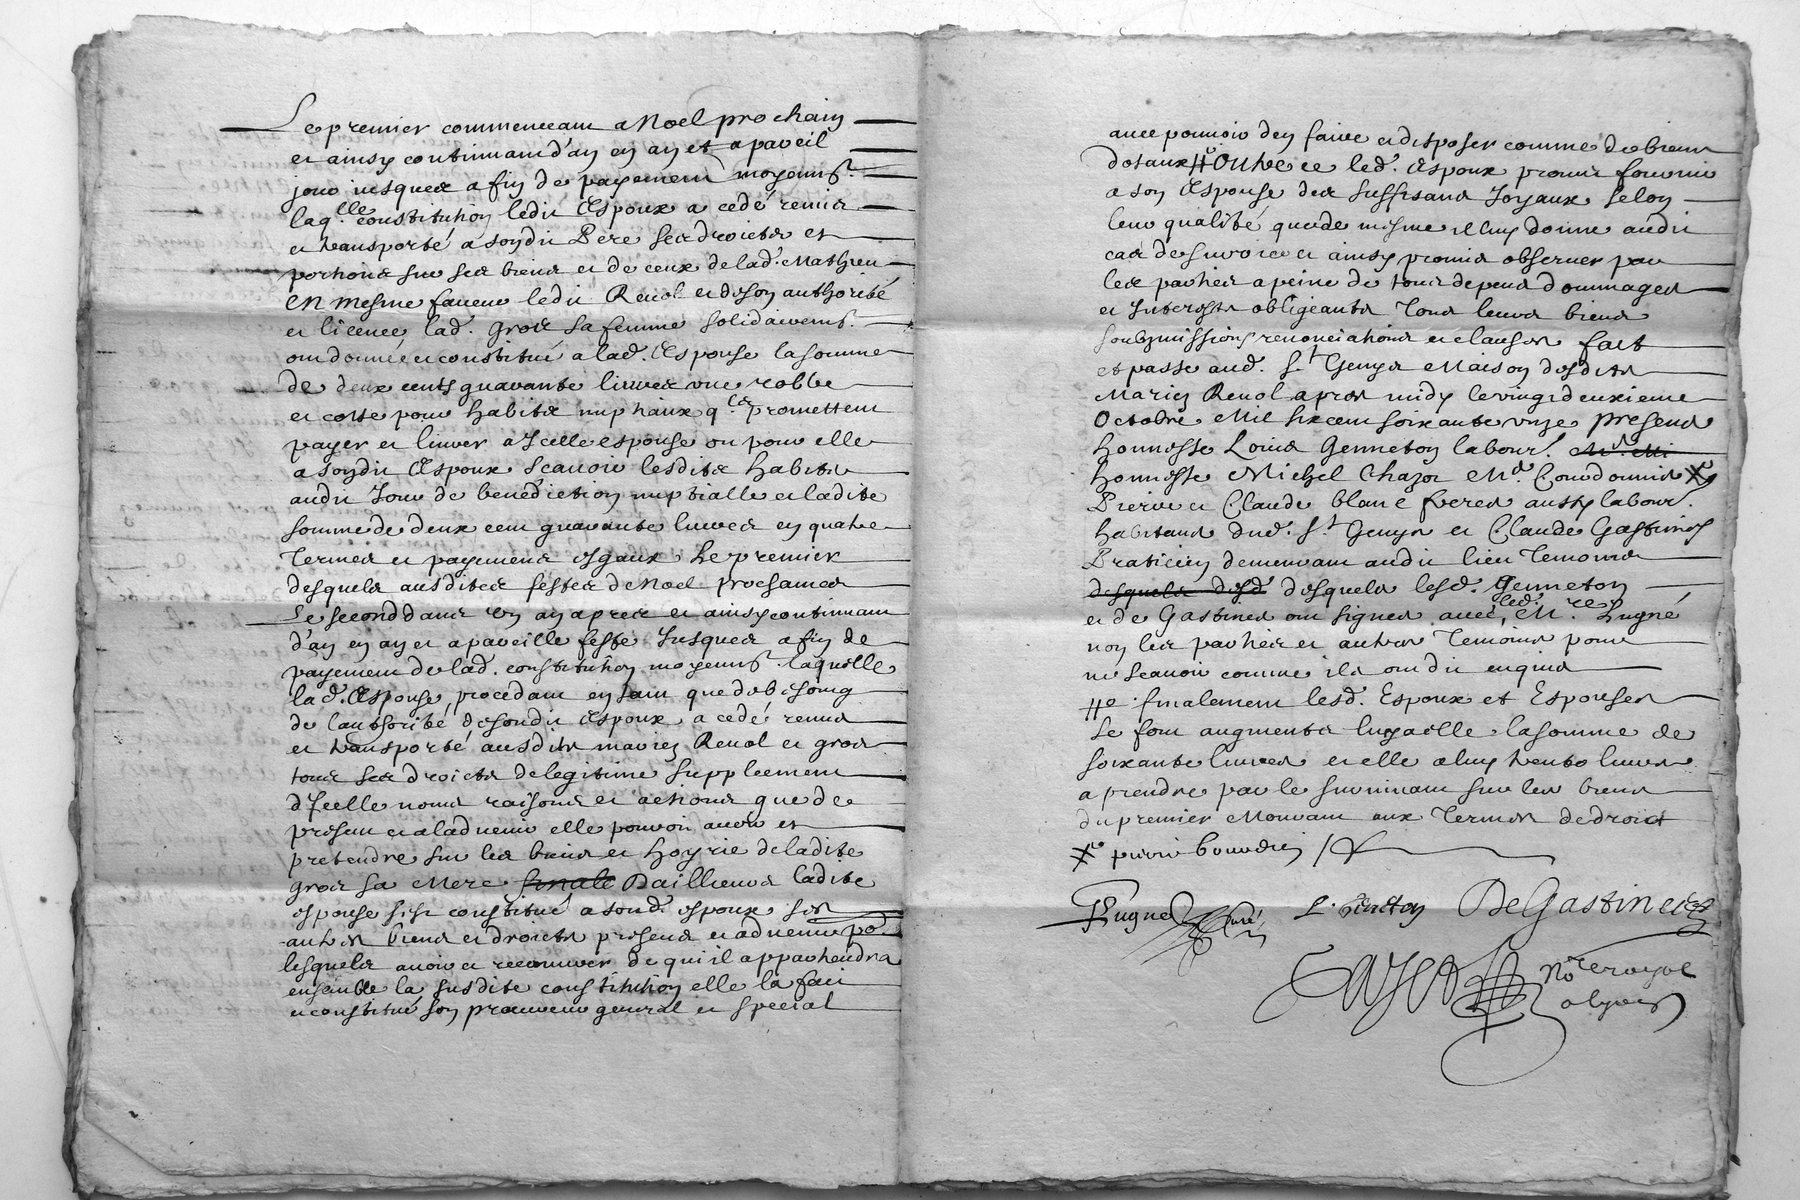 Le premier commenceant a Noel prochain
et ainsy continuant d'an en an et a pareil
jour jusques a fin de payement moyennt.
laqlle. constitution ledit Espoux a cedé remis
et transporté a sondit Pere ses droicts et
portions sur ses biens et de ceux de lad. Mathieu
en mesme faveur ledit Revol et de son authorité
et licence lad. Gros sa femme solidairemt.
ont donné et constitué a lad. Espouse la somme
de deux cents quarante livres une robbe
et cotte pour habits nuptiaux qls. promettent
payer et livrer a Icelle espouse ou pour elle
a sondit Espoux scavoir lesdits habits
audit Jour de benediction nuptialle et ladite
somme de deux cent quarante livres en quatre
Termes et payemens esgaux Le premier
desquels ausdites festes de Noel prochaines
Le second dans un an apres et ainsy continuant
d'an en an et a pareille feste Jusques a fin de
payement de lad. constitution moyennt. laquelle
lad. Espouse, procedant en tant que de besoing
de l'authorité de sondit Espoux a cedé remis
et transporté ausdits mariez Revol et Gros
tous ses droicts de legitime suppleement
d'Icelle noms raisons et actions que de
present et a ladvenir elle pouvoit avoir et
pretendre sur les biens et hoyrie de ladite
Gros sa Mere finale Dailleurs ladite
espouse s'est constitué a sond. espoux ses
autres biens et droicts presens et advenir po.
lesquels avoir et recouvrer de qui il appartiendra
ensemble la susdite constitution elle la fait
et constitué son procureur general et special
avec pouvoir d'en faire et disposer comme de biens
dotaux # Outre ce led. Espoux promit fournir
a son Espouse des suffisans Joyaux selon
leur qualité que de mesme il luy donne audit
cas de survie et ainsy promis observer par
les parties a peine de tous depens dommages
et Interests obligeants Tous leurs biens
soubzmissions renonciations et clauses fait
et passé aud. St Genys Maison desdits
Mariez Revol apres midy le vingt deuxieme
Octobre Mil six cent soixante unze presens
honneste Louis Genneton labour. Md. Mi
honneste Michel Chazot Md. Courdonnier
Pierre et Claude blanc freres aussy labour.
habitans dud. St Genys et Claude Gastines
Praticien demeurant audit lieu Temoins
desquels desd desquels lesd. Genneton
et de Gastines ont signes avec led. Mre. Lugné
non les parties et autres Temoins pour
ne scavoir comme ils ont dit enquis
# finalement lesd. Espoux et Espouse
Se font augments luy a elle la somme de
soixante livres et elle a luy trente livres
a prendre par le survivant sur les biens
du premier Mourant aux Termes de droict
pierre bourdin
Lugné curé L. Genetton DeGastines
Cayer Nore royal
a lyon